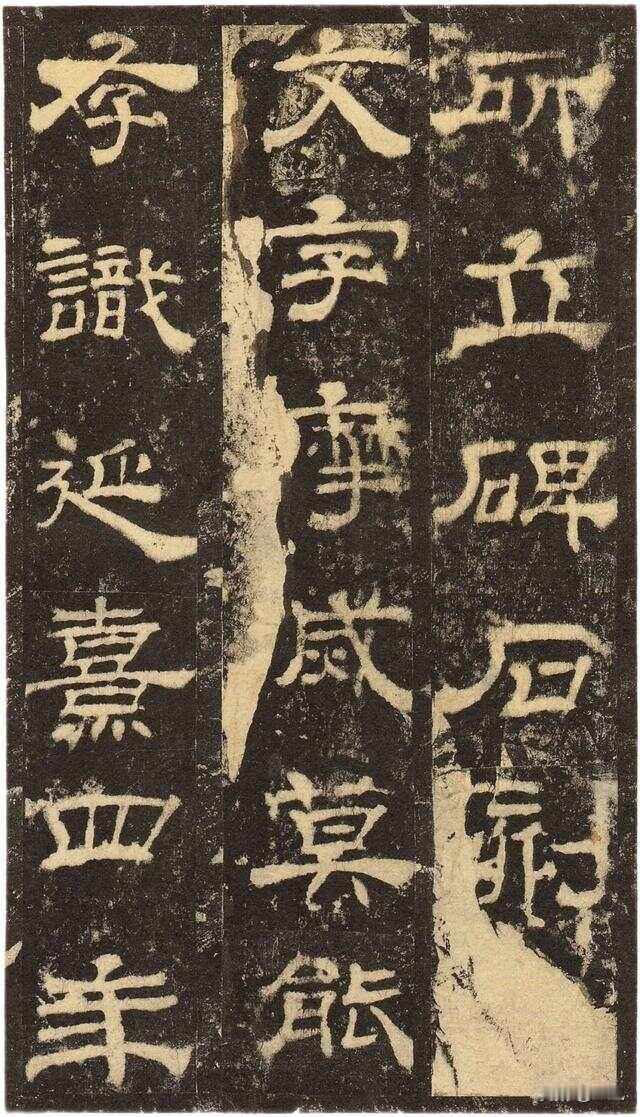 所立碑石刻
文字摩烕莫能
存識延熹四年